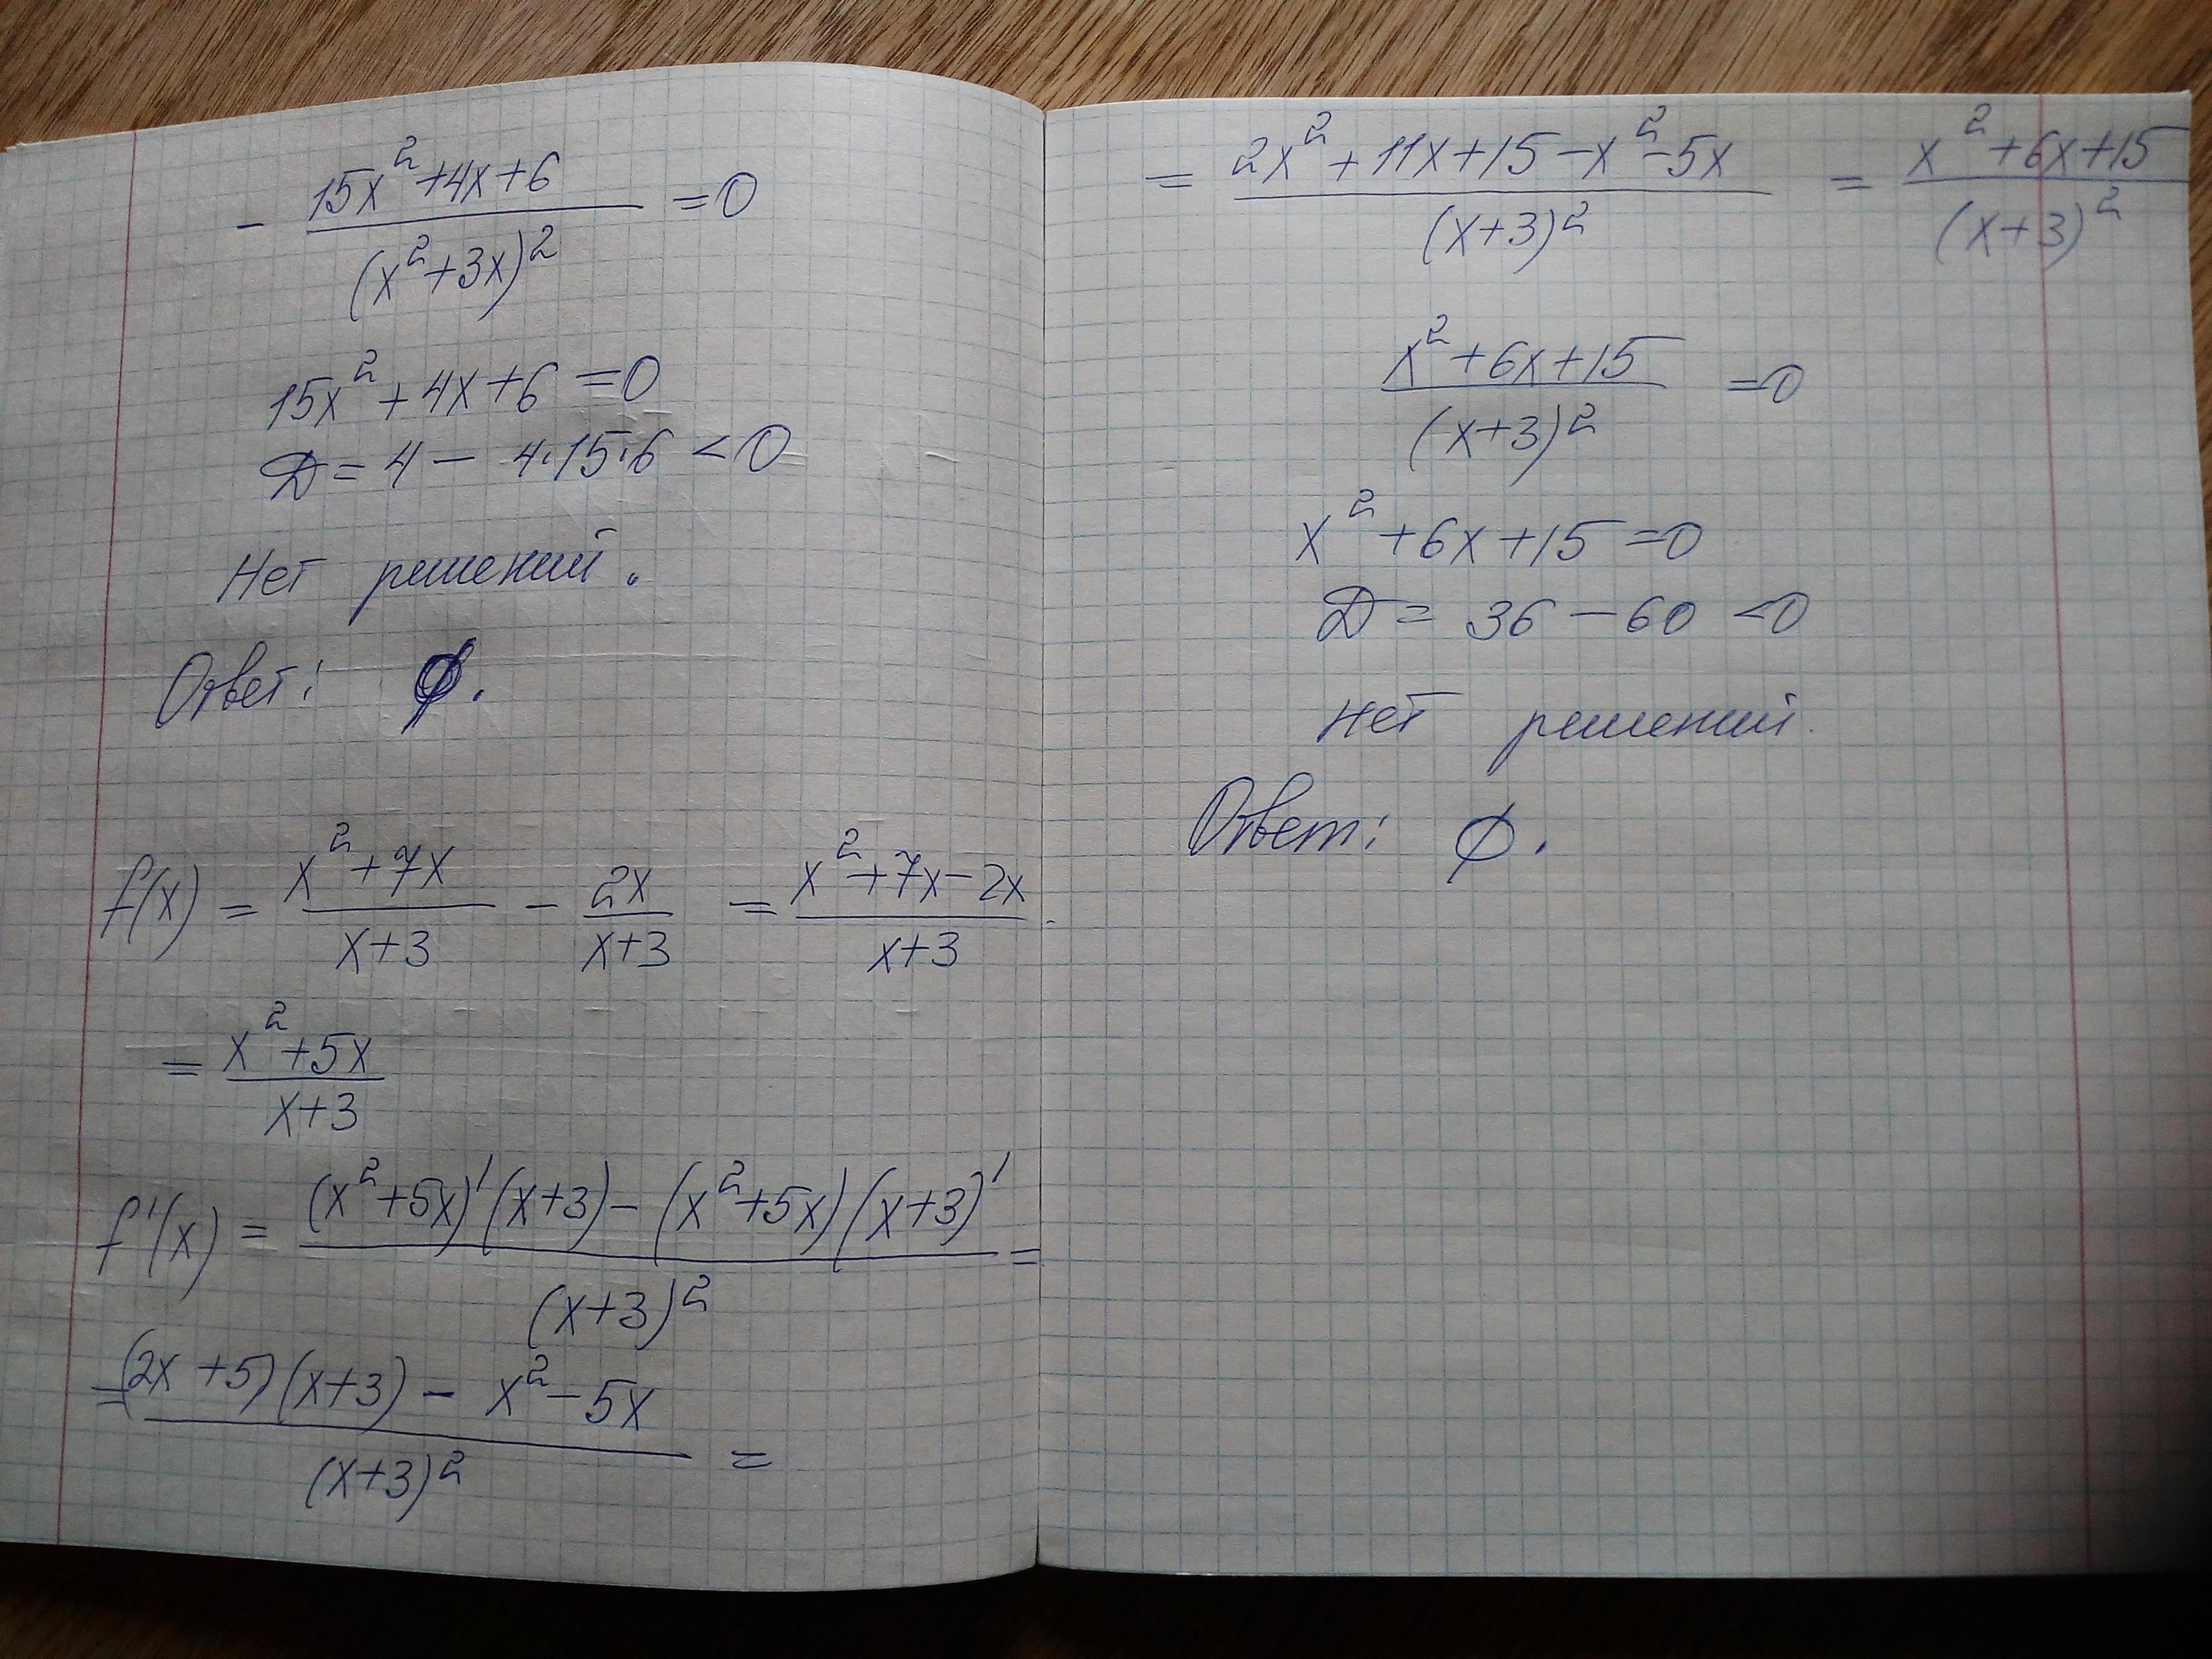 - (15x²+4x+6)/(x²+3x)² =0
15x²+4x+6=0
D=4-4·15·6<0
Нет решений.
Ответ: ∅.
f(x) = (x²+7x)/(x+3) - 2x/(x+3) = (x²+7x-2x)/(x+3)
= (x²+5x)/(x+3)
f'(x) = ((x²+5x)'(x+3)-(x²+5x)(x+3)')/(x+3)² =
= ((2x+5)(x+3)-x²-5x)/(x+3)² =
= (2x²+11x+15-x²-5x)/(x+3)² = (x²+6x+15)/(x+3)²
(x²+6x+15)/(x+3)² =0
x²+6x+15=0
D=36-60<0
Нет решений.
Ответ: ∅.